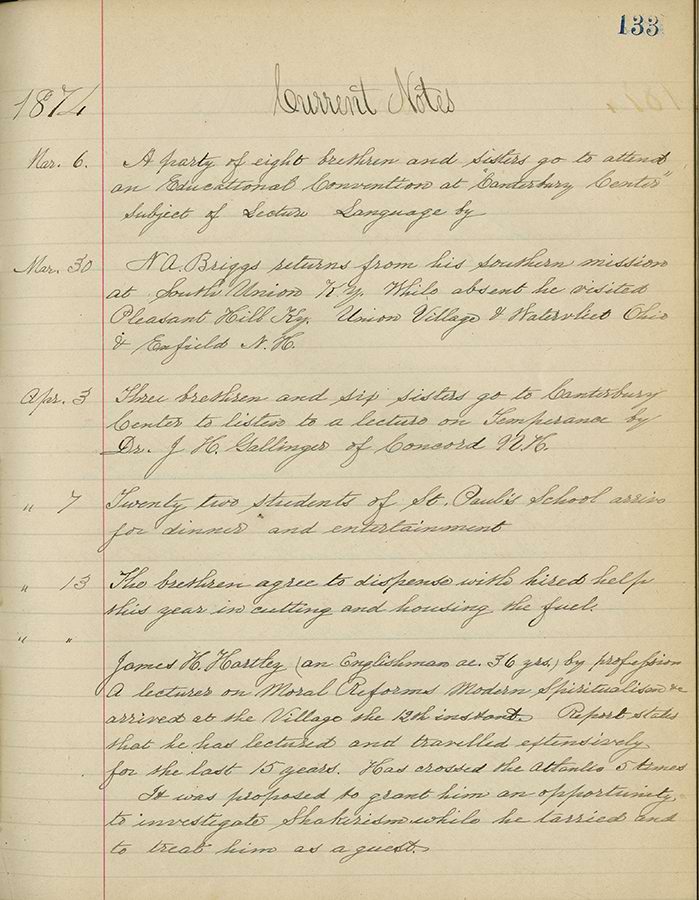 133
Current Notes
1874
Mar. 6. A party of eight brethren and sisters go to attend
an Educational Convention at "Canterbury Center"
Subject of Lecture Language by
Mar. 30 N A. Briggs returns from his southern mission
at South Union K Y. While absent he visited
Pleasant Hill Ky. Union Village & Watervliet Ohio
& Enfield N. H.
Apr. 3 Three brethren and six sisters go to Canterbury
Center to listen to a lecture on Temperance by
Dr. J H. Gallinger of Concord N.H.
" 7 Twenty two students of St. Paul's School arrive
for dinner and entertainment
" 13 The brethren agree to dispense with hired help
this year in cutting and housing the fuel.
" "
James H. Hartley (an Englishman ae. 36 yrs.) by profession
A lecturer on Moral Reforms Modern Spiritualism &c
arrived at the Village the 12th instant. Report states
that he has lectured and travelled extensively
for the last 15 years. Has crossed the Atlantic 5 times
It was proposed to grant him an opportunity
to investigate Shakerism while he tarried and
to treat him as a guest.